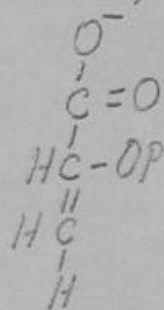 O⁻
C=O
HC-OP
HC
H